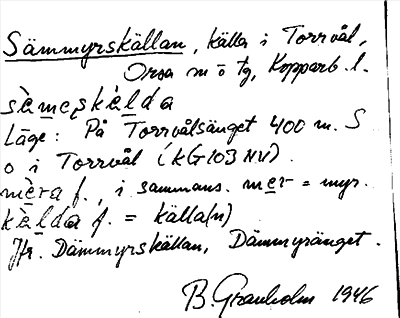 Sämmyrskällan, källa i Torrvål,
Orsa sn o tg, Kopparb. l.
sèmeskèlda
Läge: På Torrvålsänget 400 m. S
o i Torrvål (kG103 NV).
mèra f., i sammans. mer- = myr.
kèlda f. = källa(n)
Jfr. Dämmyrskällan, Dämmyränget.
B. Granholm 1946